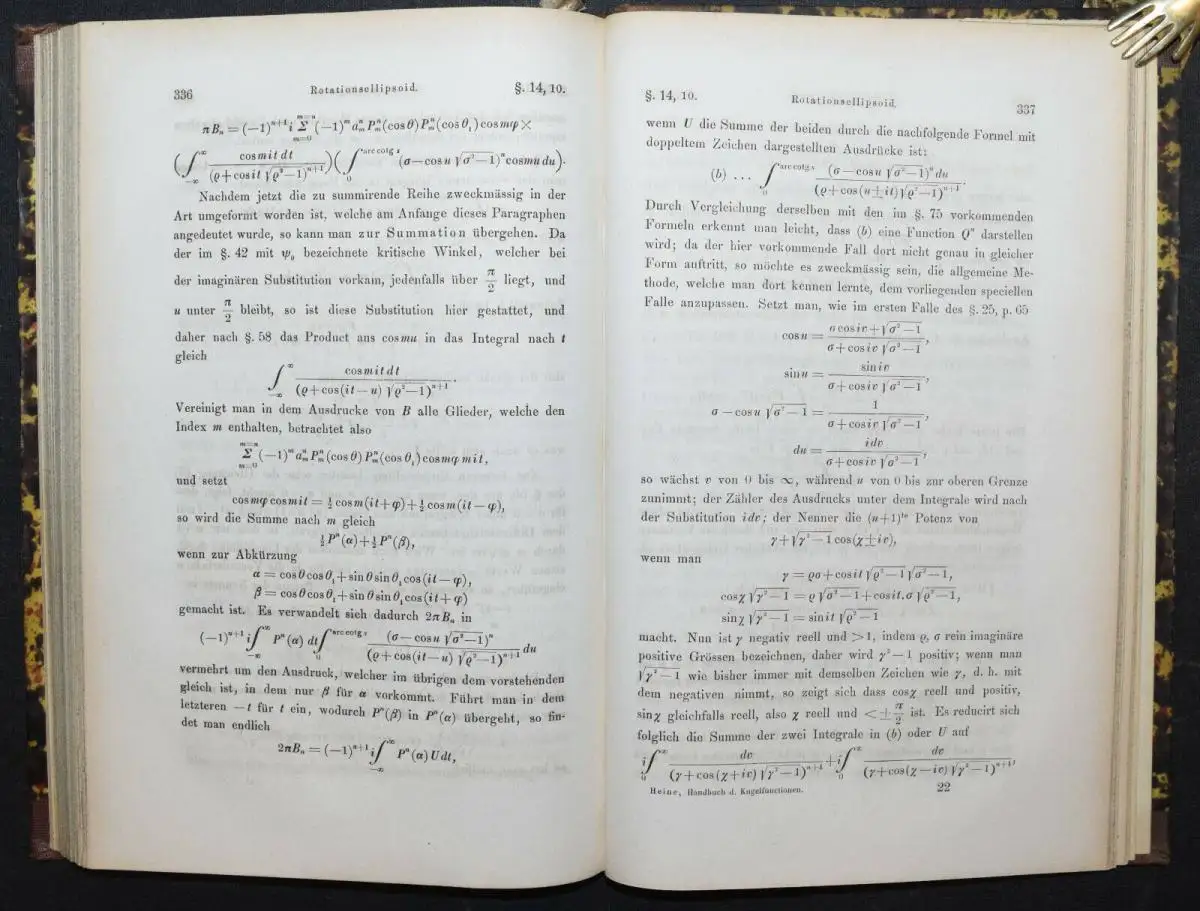 336 Rotationsellipsoid. §. 14, 10.
πBₙ = (—1)ⁿ⁺¹ i Σ_{m=0}^{m=n} (—1)ᵐ aₘⁿ Pₘⁿ(cos θ) Pₘⁿ(cos θ₁) cos mφ ×
(∫_{—∞}^{∞} cos mit dt / (ϱ + cos it √(ϱ²—1))ⁿ⁺¹)(∫_0^{arc cotg s} (σ — cos u √(σ²—1))ⁿ cos mu du).
Nachdem jetzt die zu summirende Reihe zweckmässig in der
Art umgeformt worden ist, welche am Anfange dieses Paragraphen
angedeutet wurde, so kann man zur Summation übergehen. Da
der im §. 42 mit ψ₀ bezeichnete kritische Winkel, welcher bei
der imaginären Substitution vorkam, jedenfalls über π/2 liegt, und
u unter π/2 bleibt, so ist diese Substitution hier gestattet, und
daher nach §. 58 das Product aus cos mu in das Integral nach t
gleich
∫_{—∞}^{∞} cos mit dt / (ϱ + cos(it — u) √(ϱ²—1))ⁿ⁺¹.
Vereinigt man in dem Ausdrucke von B alle Glieder, welche den
Index m enthalten, betrachtet also
Σ_{m=0}^{m=n} (—1)ᵐ aₘⁿ Pₘⁿ(cos θ) Pₘⁿ(cos θ₁) cos mφ cos mit,
und setzt
cos mφ cos mit = ½ cos m(it + φ) + ½ cos m(it — φ),
so wird die Summe nach m gleich
½Pⁿ(α) + ½Pⁿ(β),
wenn zur Abkürzung
α = cos θ cos θ₁ + sin θ sin θ₁ cos (it — φ),
β = cos θ cos θ₁ + sin θ sin θ₁ cos (it + φ)
gemacht ist. Es verwandelt sich dadurch 2πBₙ in
(—1)ⁿ⁺¹ i ∫_{—∞}^{∞} Pⁿ(α) dt ∫_0^{arc cotg s} (σ — cos u √(σ²—1))ⁿ / (ϱ + cos(it — u) √(ϱ²—1))ⁿ⁺¹ du
vermehrt um den Ausdruck, welcher im übrigen dem vorstehenden
gleich ist, in dem nur β für α vorkommt. Führt man in dem
letzteren —t für t ein, wodurch Pⁿ(β) in Pⁿ(α) übergeht, so fin-
det man endlich
2πBₙ = (—1)ⁿ⁺¹ i ∫_{—∞}^{∞} Pⁿ(α) U dt,
§. 14, 10. Rotationsellipsoid. 337
wenn U die Summe der beiden durch die nachfolgende Formel mit
doppeltem Zeichen dargestellten Ausdrücke ist:
(b) ... ∫_0^{arc cotg s} (σ — cos u √(σ²—1))ⁿ du / (ϱ + cos (u ± it) √(ϱ²—1))ⁿ⁺¹.
Durch Vergleichung derselben mit den im §. 75 vorkommenden
Formeln erkennt man leicht, dass (b) eine Function Qⁿ darstellen
wird; da der hier vorkommende Fall dort nicht genau in gleicher
Form auftritt, so möchte es zweckmässig sein, die allgemeine Me-
thode, welche man dort kennen lernte, dem vorliegenden speciellen
Falle anzupassen. Setzt man, wie im ersten Falle des §. 25, p. 65
cos u = (σ cos iv + √(σ²—1)) / (σ + cos iv √(σ²—1)),
sin u = sin iv / (σ + cos iv √(σ²—1)),
σ — cos u √(σ²—1) = 1 / (σ + cos iv √(σ²—1)),
du = idv / (σ + cos iv √(σ²—1)),
so wächst v von 0 bis ∞, während u von 0 bis zur oberen Grenze
zunimmt; der Zähler des Ausdrucks unter dem Integrale wird nach
der Substitution idv; der Nenner die (n+1)ᵗᵉ Potenz von
γ + √(γ²—1) cos(χ ± iv),
wenn man
γ = ϱσ + cos it √(ϱ²—1) √(σ²—1),
cos χ √(γ²—1) = ϱ √(σ²—1) + cos it. σ √(ϱ²—1),
sin χ √(γ²—1) = sin it √(ϱ²—1)
macht. Nun ist γ negativ reell und >1, indem ϱ, σ rein imaginäre
positive Grössen bezeichnen, daher wird γ²—1 positiv; wenn man
√(γ²—1) wie bisher immer mit demselben Zeichen wie γ, d. h. mit
dem negativen nimmt, so zeigt sich dass cos χ reell und positiv,
sin χ gleichfalls reell, also χ reell und < ± π/2 ist. Es reducirt sich
folglich die Summe der zwei Integrale in (b) oder U auf
i ∫_0^{∞} dv / (γ + cos(χ + iv) √(γ²—1))ⁿ⁺¹ + i ∫_0^{∞} dv / (γ + cos(χ — iv) √(γ²—1))ⁿ⁺¹,
Heine, Handbuch d. Kugelfunctionen. 22